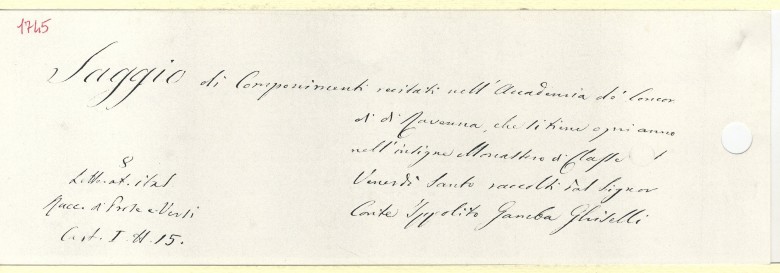 1745
Saggio di Componimenti recitati nell'Accademia de' Concor
di di Ravenna, che si tiene ogni anno
nell'insigne Monastero di Classe I
Venerdì Santo raccolti dal Signor
Conte Ippolito Gamba Ghiselli
§
Letterat. ital
Racc. di Prose e Versi
Cart. I. N. 15.